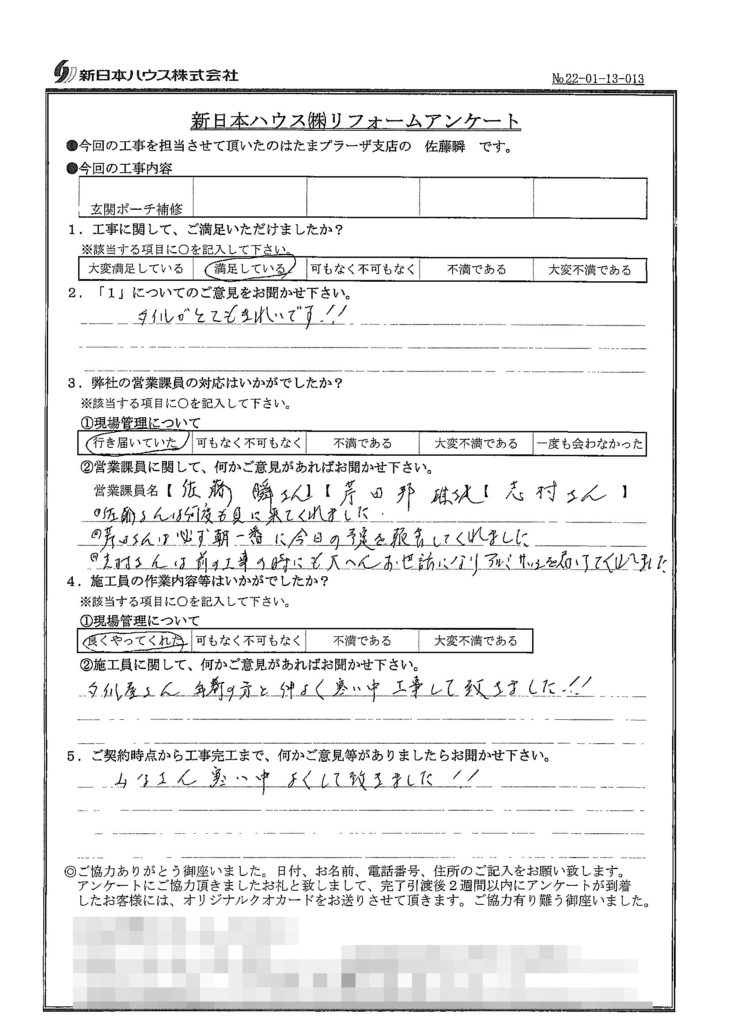 新日本ハウス株式会社
№22-01-13-013
新日本ハウス㈱リフォームアンケート
●今回の工事を担当させて頂いたのはたまプラーザ支店の 佐藤瞬 です。
●今回の工事内容
玄関ポーチ補修
1．工事に関して、ご満足いただけましたか？
※該当する項目に○を記入して下さい。
大変満足している 満足している 可もなく不可もなく 不満である 大変不満である
2．「1」についてのご意見をお聞かせ下さい。
タイルがとてもきれいです!!
3．弊社の営業課員の対応はいかがでしたか？
※該当する項目に○を記入して下さい。
①現場管理について
行き届いていた 可もなく不可もなく 不満である 大変不満である 一度も会わなかった
②営業課員に関して、何かご意見があればお聞かせ下さい。
営業課員名【佐藤 瞬さん】【芹田邦 【志村さん】
佐藤さんは何度も見に来てくれました。
芹田さんは必ず朝一番に今日の予定を報告してくれました
志村さんは前の工事の時にも大へんお世話になりアルミサッシを届けてくれました
4．施工員の作業内容等はいかがでしたか？
※該当する項目に○を記入して下さい。
①現場管理について
良くやってくれた 可もなく不可もなく 不満である 大変不満である
②施工員に関して、何かご意見があればお聞かせ下さい。
タイル屋さん の方と仲よく寒い中工事して頂きました!!!
5．ご契約時点から工事完工まで、何かご意見等がありましたらお聞かせ下さい。
さん 寒い中 よくして頂きました!!
◎ご協力ありがとう御座いました。日付、お名前、電話番号、住所のご記入をお願い致します。
アンケートにご協力頂きましたお礼と致しまして、完了引渡後2週間以内にアンケートが到着
したお客様には、オリジナルクオカードをお送りさせて頂きます。ご協力有り難う御座いました。